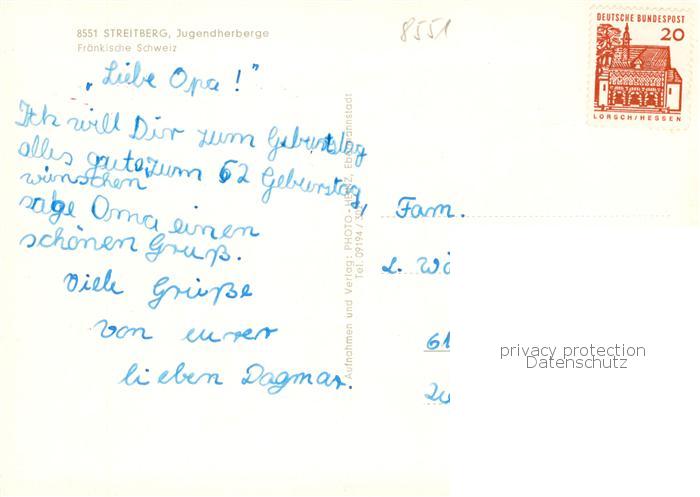 8551 STREITBERG, Jugendherberge
Fränkische Schweiz
8551
DEUTSCHE BUNDESPOST
20
LORSCH/HESSEN
„Liebe Opa!"
Ich will Dir zum Geburtstag
alles gute zum 62 Geburstag,
wünschen
sage Oma einen
schönen Gruß.
Viele Grüße
von eurer
lieben Dagmar.
Aufnahmen und Verlag: PHOTO-
Ebermannstadt
Tel. 09194/
Fam.
L. Wö
61
privacy protection
Datenschutz